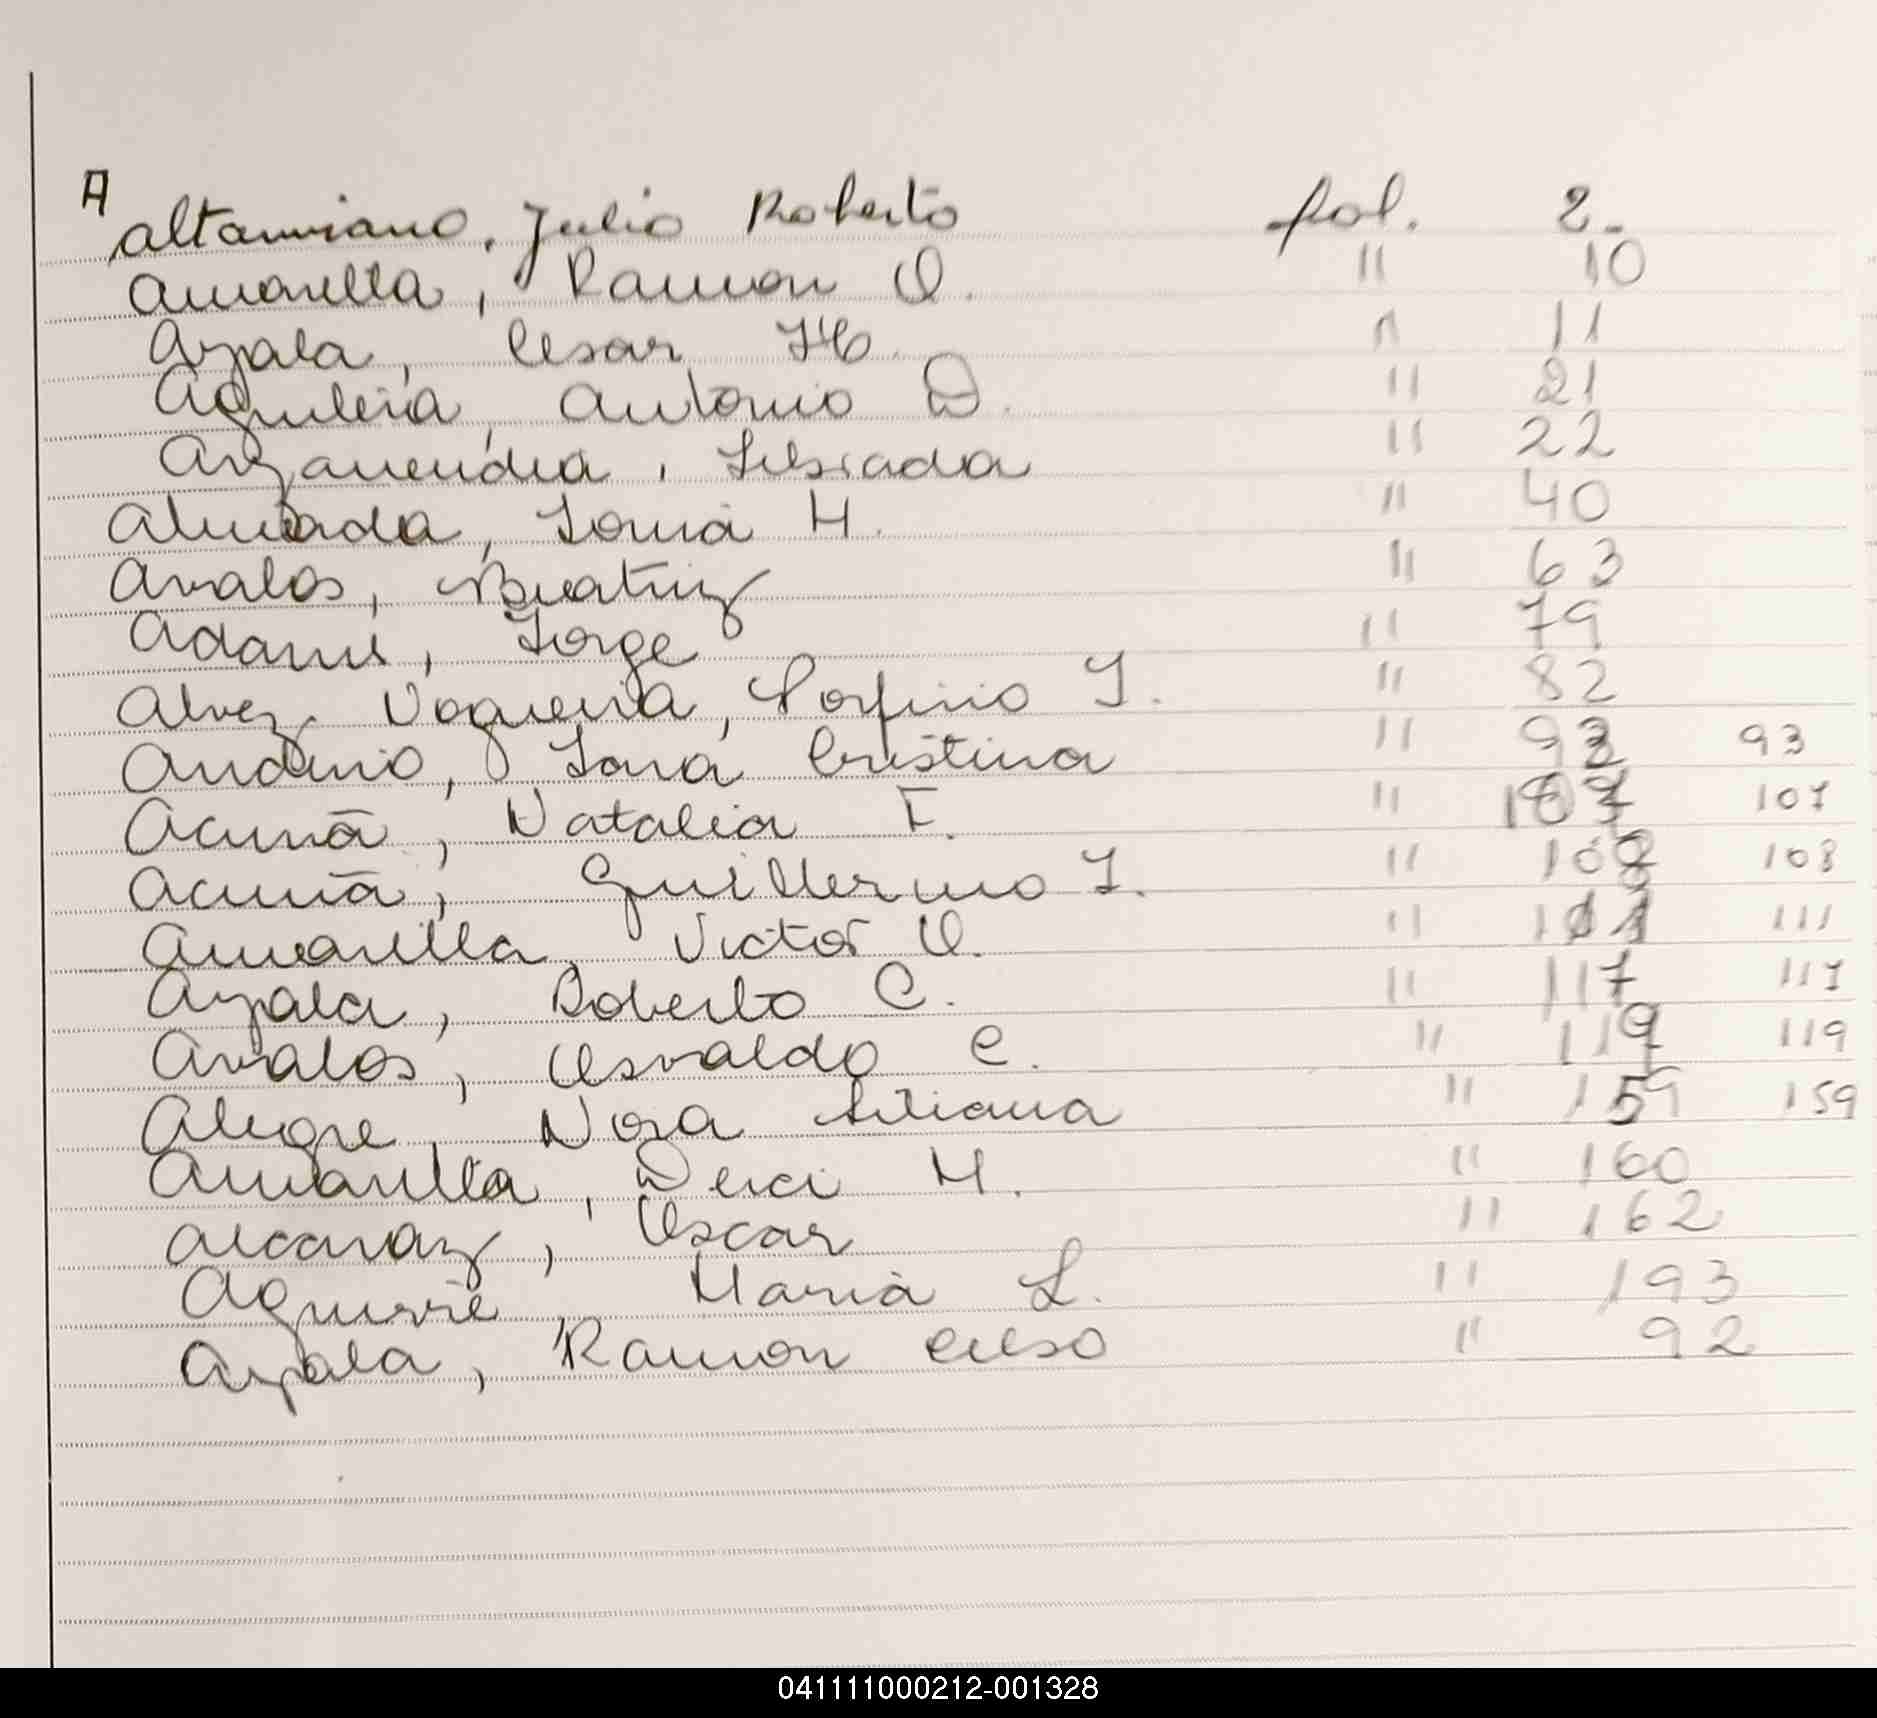 A
Altamirano, Julio Roberto fol. 2.
Amarilla, Ramon O. " 10
Ayala, Cesar H. " 11
Aguilera, Antonio D. " 21
Arzamendia, Libriada " 22
Almada, Sonia H. " 40
Avalos, Beatriz " 63
Adams, Jorge " 79
Alvez Nogueira, Porfirio J. " 82
Andino, Sara Cristina " 93 93
Acuña, Natalia F. " 107 107
Acuña, Guillermo J. " 108 108
Amarilla, Victor O. " 111 111
Ayala, Roberto C. " 117 117
Avalos, Osvaldo C. " 119 119
Alegre, Nora Liliana " 159 159
Amarilla, Derci M. " 160
Alcaraz, Oscar " 162
Aguirre, Maria L. " 193
Ayala, Ramon Celso " 92
041111000212-001328